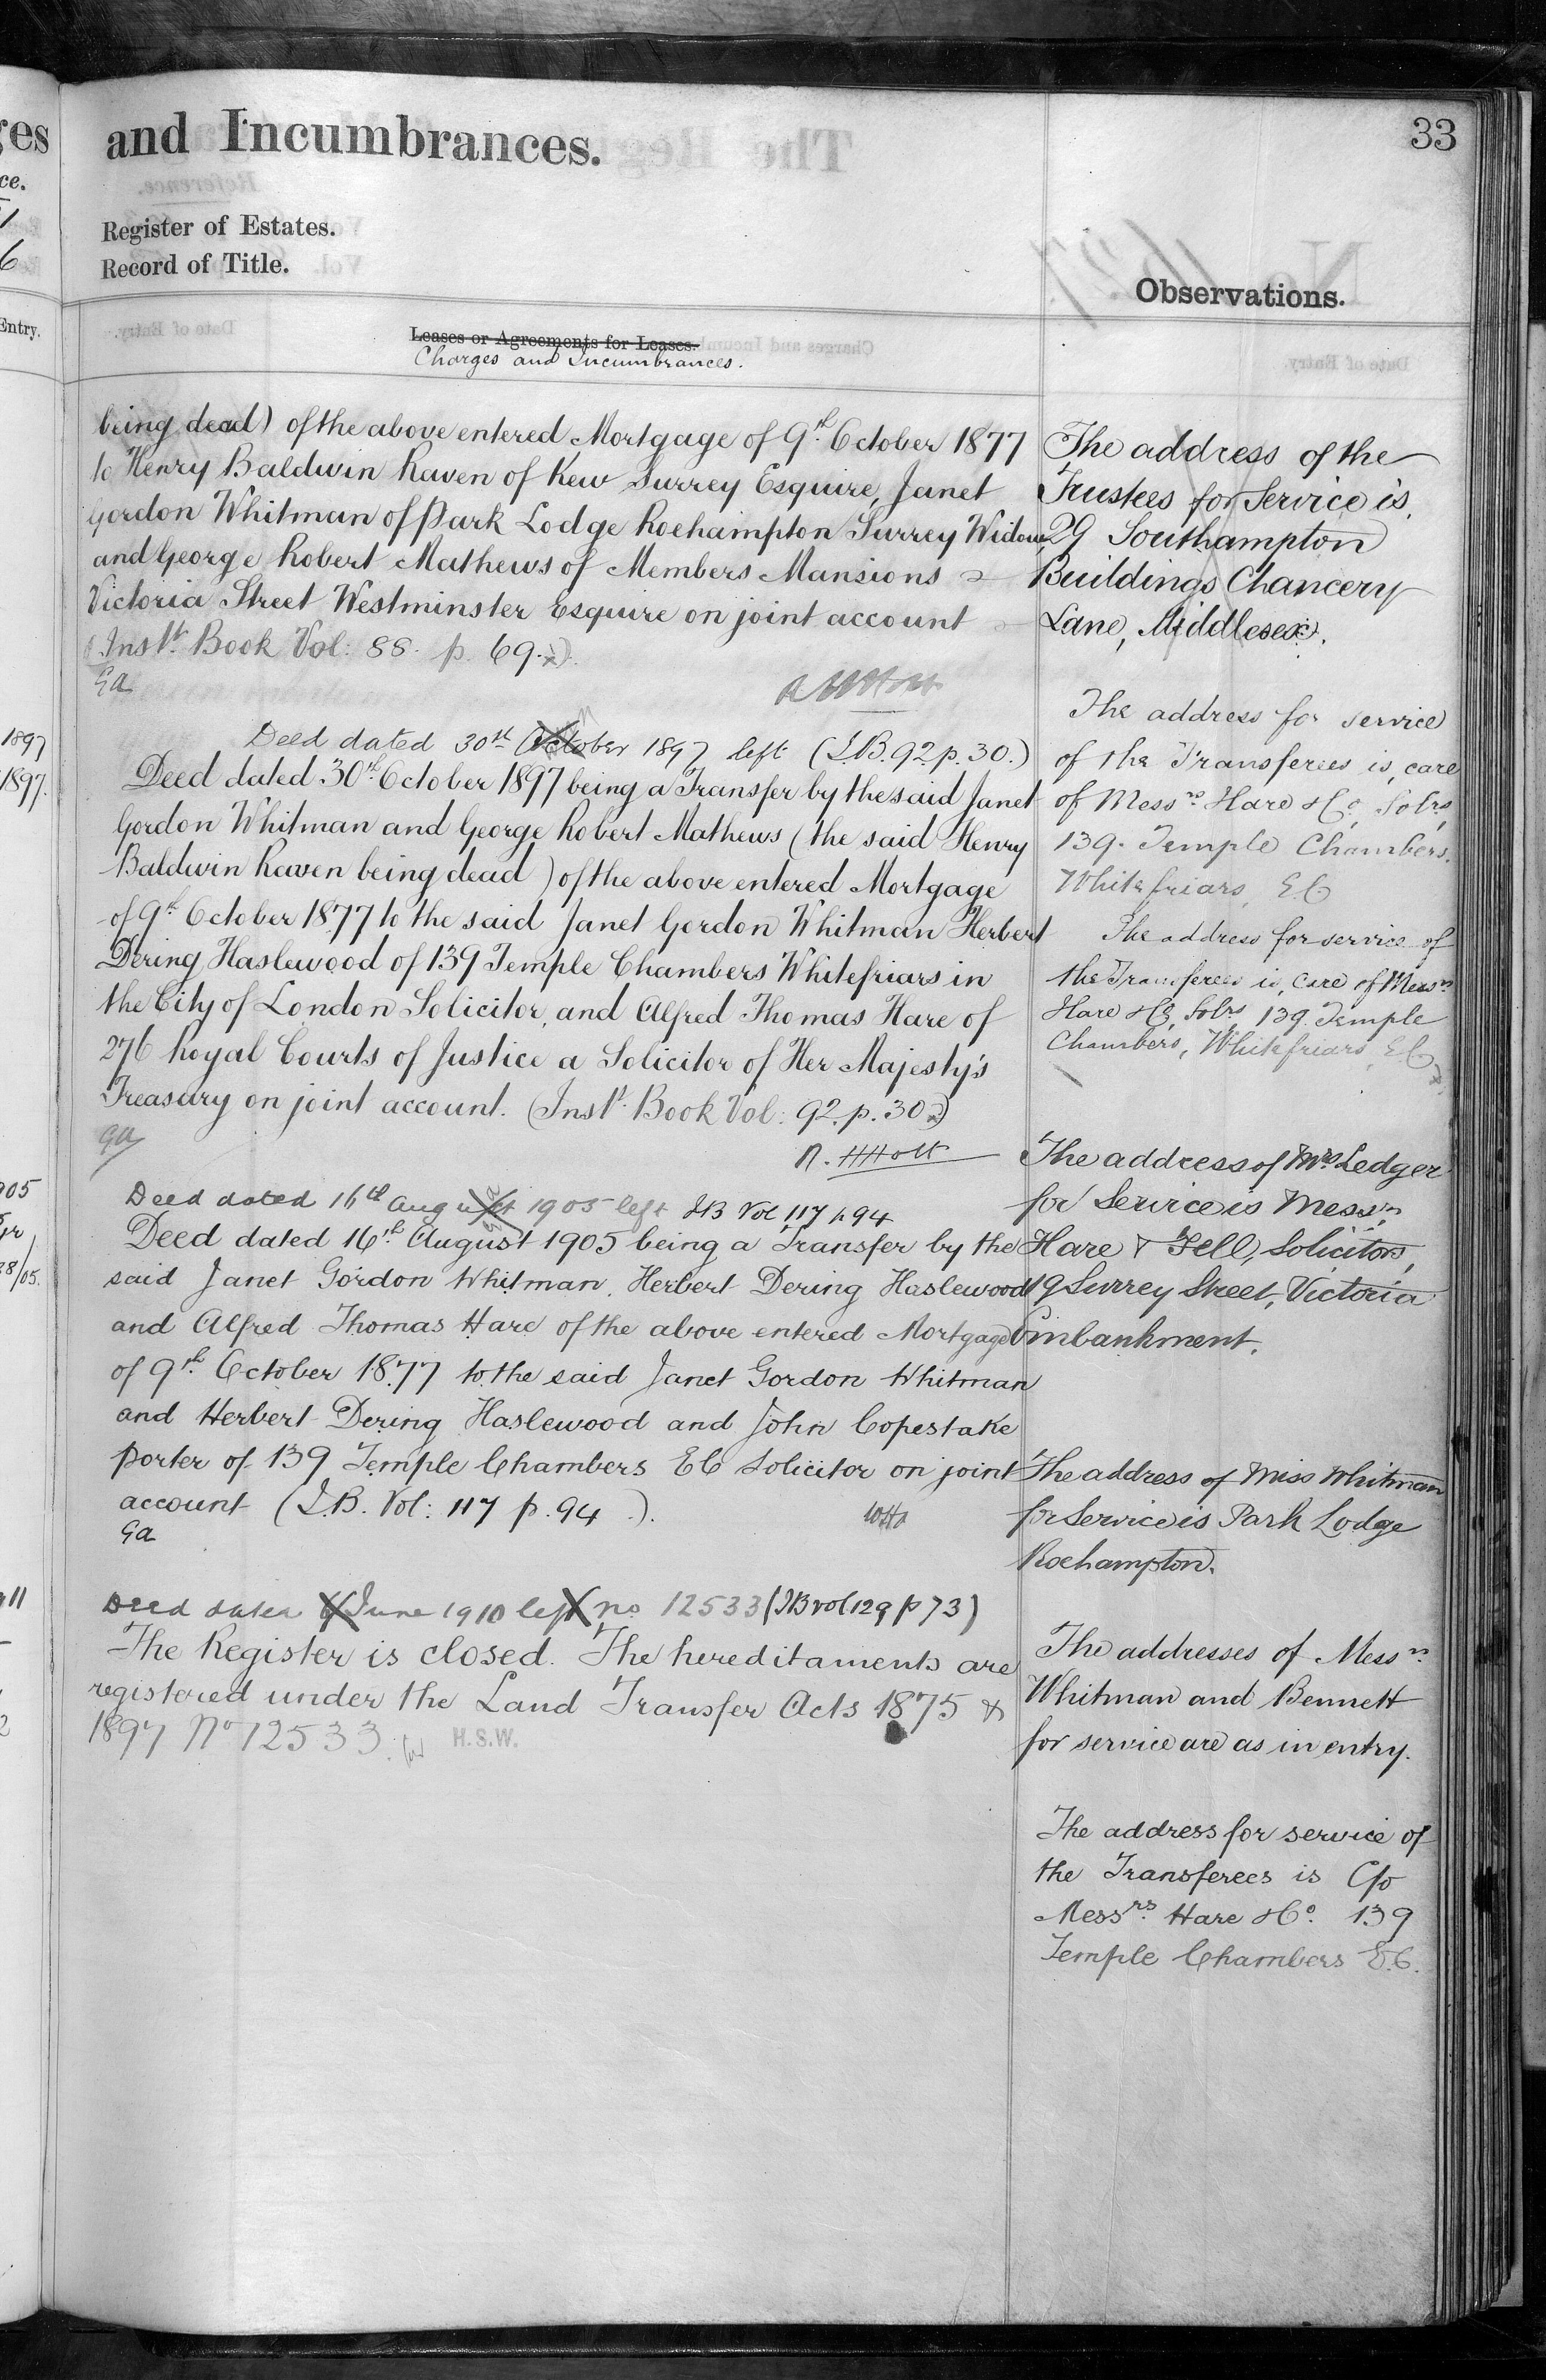 and Incumbrances.
33
Register of Estates.
Record of Title.
Observations.
Leases or Agreements for Leases.
Charges and Incumbrances.
being dead) of the above entered Mortgage of 9th October 1877
to Henry Baldwin Raven of Kew Surrey Esquire, Janet
Gordon Whitman of Park Lodge Roehampton Surrey Widow
and George Robert Mathews of Members Mansions
Victoria Street Westminster Esquire on joint account
(Inst. Book Vol: 88. p. 69.)
Deed dated 30th October 1897 left (I.B. 92. p. 30.)
Deed dated 30th October 1897 being a Transfer by the said Janet
Gordon Whitman and George Robert Mathews (the said Henry
Baldwin Raven being dead) of the above entered Mortgage
of 9th October 1877 to the said Janet Gordon Whitman Herbert
Dering Haslewood of 139 Temple Chambers Whitefriars in
the City of London Solicitor, and Alfred Thomas Hare of
276 Royal Courts of Justice a Solicitor of Her Majesty's
Treasury on joint account. (Inst. Book Vol: 92. p. 30)
R. H. Holt
Deed dated 16th August 1905 left IB Vol 117 p 94
Deed dated 16th August 1905 being a Transfer by the
said Janet Gordon Whitman, Herbert Dering Haslewood
and Alfred Thomas Hare of the above entered Mortgage
of 9th October 1877 to the said Janet Gordon Whitman
and Herbert Dering Haslewood and John Copestake
Porter of 139 Temple Chambers EC Solicitor on joint
account (I.B. Vol: 117 p. 94 ).
Deed dated June 1910 left no 12533 (IB vol 129 p 73)
The Register is closed. The hereditaments are
registered under the Land Transfer Acts 1875 &
1897 No 12533.
H.S.W.
The address of the
Trustees for Service is
29 Southampton
Buildings Chancery
Lane, Middlesex.
The address for service
of the Transferees is, care
of Messrs Hare & Co, Solrs,
139. Temple Chambers.
Whitefriars, E.C
The address for service of
the Transferees is, care of Messrs
Hare & Co, Solrs, 139. Temple
Chambers, Whitefriars, E.C
The address of Mrs Ledger
for Service is Messrs
Hare & Fell, Solicitors,
19 Surrey Street, Victoria
Embankment.
The address of Miss Whitman
for Service is Park Lodge
Roehampton.
The addresses of Messrs
Whitman and Bennett
for service are as in entry.
The address for service of
the Transferees is C/o
Messrs Hare & Co. 139
Temple Chambers E.C.